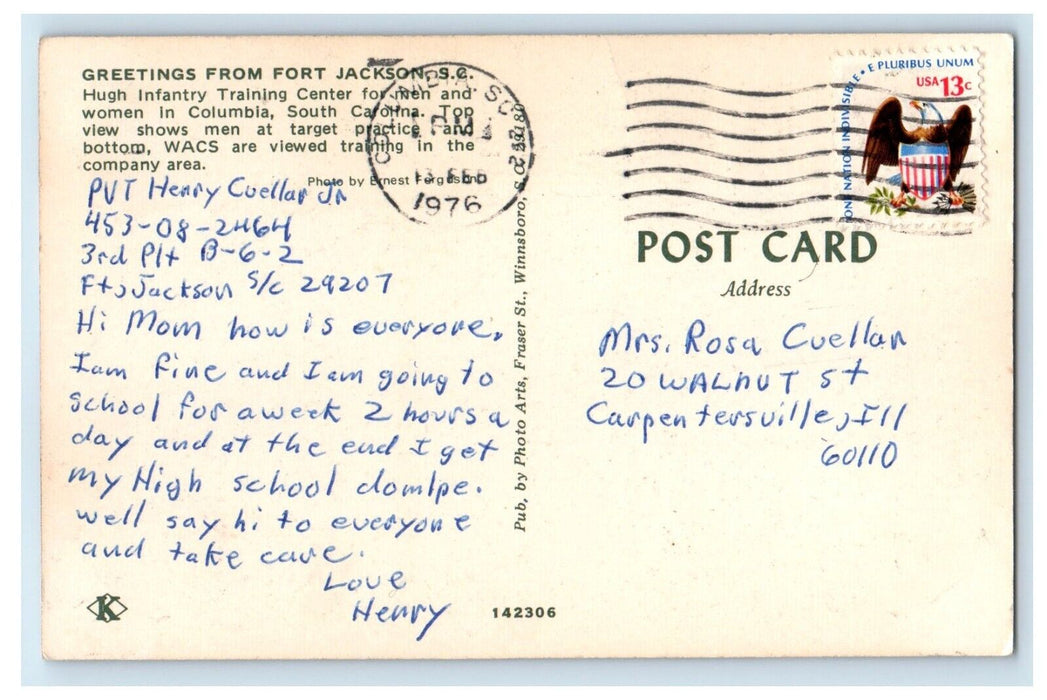 GREETINGS FROM FORT JACKSON, S.C.
Hugh Infantry Training Center for men and
women in Columbia, South Carolina. Top
view shows men at target practice and
bottom, WACS are viewed training in the
company area.
Photo by Ernest Ferguson
PVT Henry Cuellar Jr
453-08-2464
3rd Plt B-6-2
Ft, Jackson S/c 29207
Hi Mom how is everyone,
I am fine and I am going to
school for a week 2 hours a
day and at the end I get
my High school domlpe.
well say hi to everyone
and take care.
Love
Henry
K
142306
Pub, by Photo Arts, Fraser St., Winnsboro, S.C. 29180
COLUMBIA SC
PM
13 FEB
1976
ONE NATION INDIVISIBLE • E PLURIBUS UNUM
USA 13c
POST CARD
Address
Mrs. Rosa Cuellar
20 WALNUT St
Carpentersville, Ill
60110